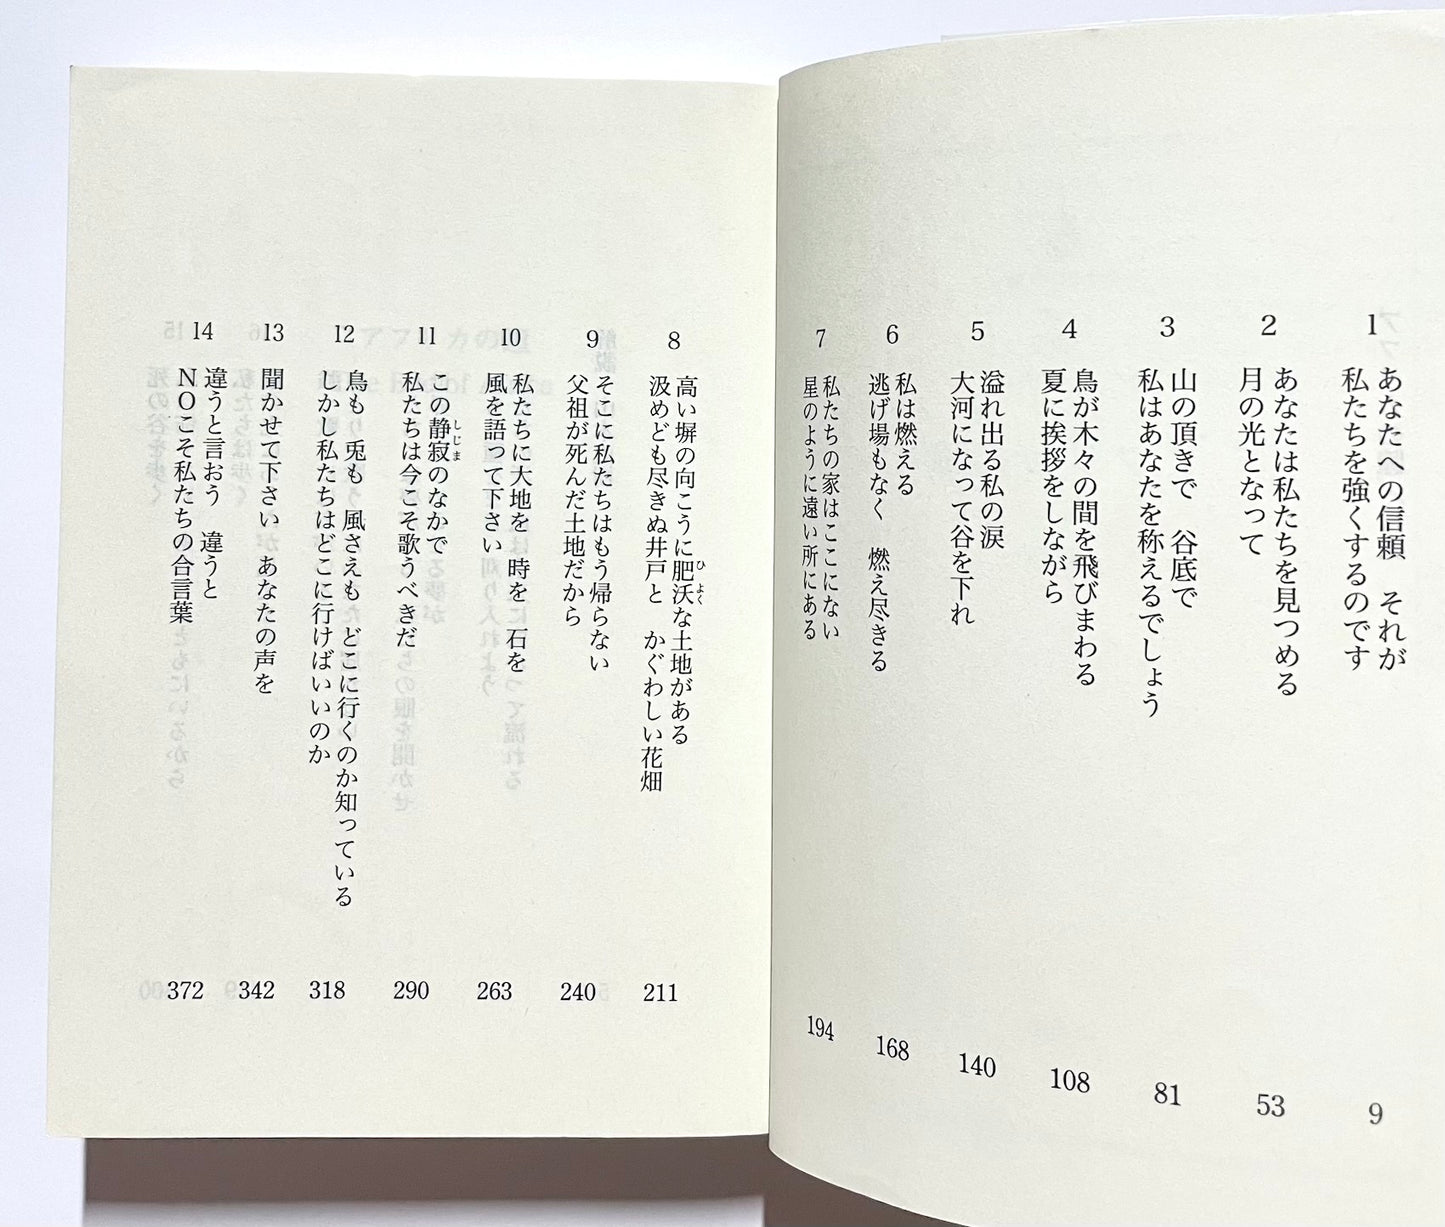 1
あなたへの信頼　それが
私たちを強くするのです
9
2
あなたは私たちを見つめる
月の光となって
53
3
山の頂きで　谷底で
私はあなたを称えるでしょう
81
4
鳥が木々の間を飛びまわる
夏に挨拶をしながら
108
5
溢れ出る私の涙
大河になって谷を下れ
140
6
私は燃える
逃げ場もなく　燃え尽きる
168
7
私たちの家はここにない
星のように遠い所にある
194
8
高い塀の向こうに肥沃な土地がある
ひよく
汲めども尽きぬ井戸と　かぐわしい花畑
211
9
そこに私たちはもう帰らない
父祖が死んだ土地だから
240
10
私たちに大地を　時を　石を
風を語って下さい
263
11
この静寂のなかで
しじま
私たちは今こそ歌うべきだ
290
12
鳥も　兎も　風さえも　どこに行くのか知っている
しかし私たちはどこに行けばいいのか
318
13
聞かせて下さい　あなたの声を
342
14
違うと言おう　違うと
NOこそ私たちの合言葉
372